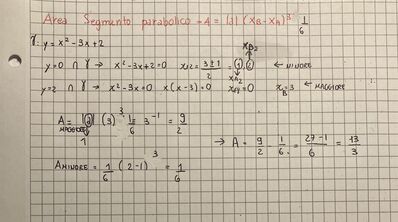 Area Segmento parabolico = A = |a| (xB - xA)³ 1/6
γ: y = x² - 3x + 2
xB2
y=0 ∩ γ → x² - 3x + 2 = 0 x1,2 = 3±1/2 = 1 2 ← MINORE
xA2
y=2 ∩ γ → x² - 3x = 0 x(x-3) = 0 xA = 0 xB = 3 ← MAGGIORE
A MAGGIORE = |a| (3)³ 1/6 = 3 -1 = 9/2
1
→ A = 9/2 - 1/6 = 27-1/6 = 13/3
A MINORE = 1/6 (2-1)³ = 1/6